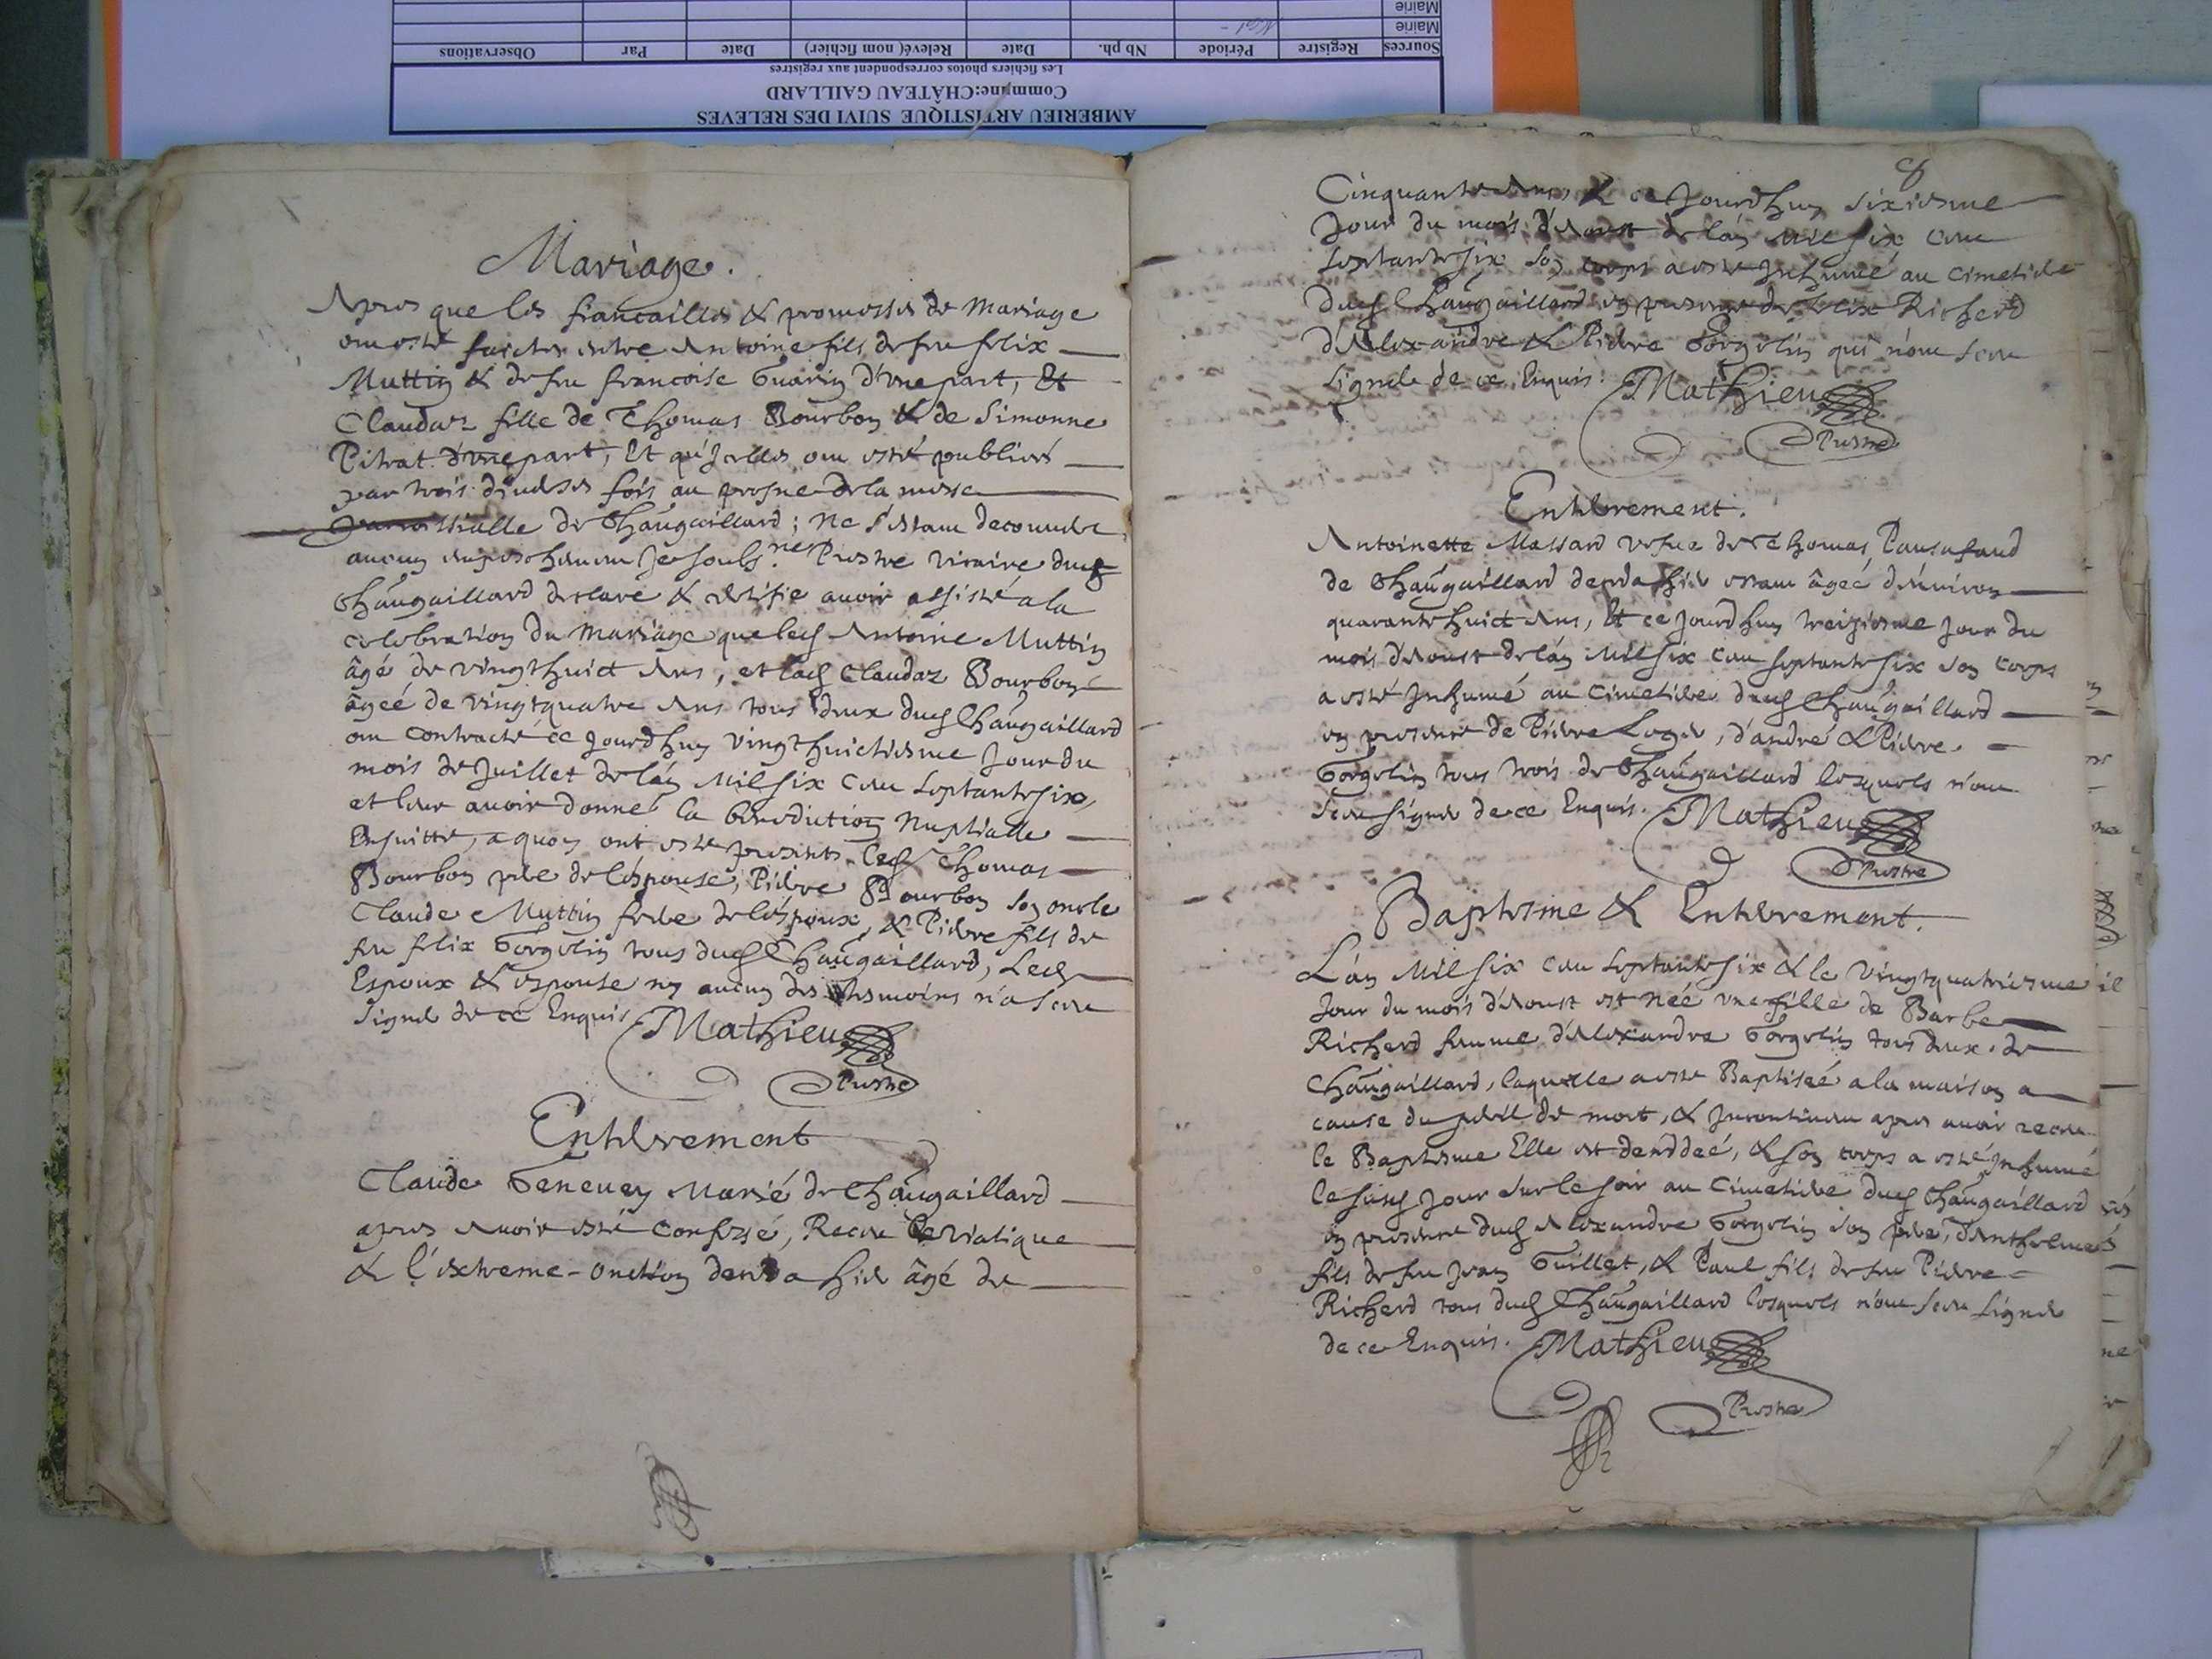 AMBERIEU ARTISTIQUE SUIVI DES RELEVES
Commune:CHÂTEAU GAILLARD
Les fichiers photos correspondent aux registres
Sources Registre Période Nb ph. Date Relevé( nom fichier) Date Par Observations
Mairie
Mairie
Mariage.
Apres que les fiancailles & promesses de Mariage
ont esté faictes entre Antoine fils de feu felix
Muttin & de feu francoise Guarin d'vne part, Et
Claudaz fille de Thomas Bourbon & de Simonne
Pitrat d'vne part, Et qu'Jcelles ont esté publiées
par trois diuerses fois au prosne de la messe
parroissialle de Chaûgaillard ; ne s'estant decouuert
aucun empeschement Je soubs.né Prestre vicaire dud
Chaûgaillard declare & certifie auoir assisté a la
celebration du Mariage que led Antoine Muttin
âgé de vingthuict Ans, et lad Claudaz Bourbon
âgeé de vingtquatre Ans tous deux dud Chaûgaillard
ont contracté ce Jourdhuy vingthuictiesme Jour du
mois de Juillet de l'an Mil six cent septantesix,
et leur auoir donné la benediction Nuptialle
Ensuitte, a quoy ont esté presents led Thomas
Bourbon pere de l'espouse, Pierre Bourbon son oncle
Claude Muttin frere de l'espoux, & Pierre fils de
feu felix Gorgelin tous dud Chaûgaillard, Led
Espoux & espouse ny aucun des tesmoins n'a sceu
signer de ce Enquis Mathieu
Prestre
Enterrement
Claude Geneuey Marié de Chaûgaillard
apres Auoir esté confessé, Receu le viatique
& l'extreme-onction decéda hier âgé de
8
Cinquante Ans, & ce Jourdhuy sixiesme
Jour du mois d'Aoust de l'an Mil six cent
septantesix son corps a esté Inhumé au cimetiere
dud Chaûgaillard en presence de felix Richerd
d'Alexandre & Pierre Gorgelin qui n'ont sceu
signer de ce Enquis. Mathieu
Prestre
Enterrement.
Antoinette Massard vefue de Thomas
de Chaûgaillard deceda hier estant âgeé d'enuiron
quarantehuict Ans, Et ce Jourdhuy treiziesme Jour du
mois d'Aoust de l'an Mil six cent septantesix son corps
a esté Inhumé au cimetiere dud Chaûgaillard
en presence de Pierre Loger, d'andré & Pierre
Gorgelin tous trois de Chaûgaillard lesquels n'ont
sceu signer de ce Enquis. Mathieu
Prestre
Baptesme & Enterrement.
L'an Mil six cent septantesix & le vingtquatriesme
Jour du mois d'Aoust est née vne fille de Barbe
Richerd femme d'Alexandre Gorgelin tous deux de
Chaûgaillard, laquelle a esté Baptiseé a la maison a
cause du peril de mort, & Incontinent apres auoir receu
le Baptesme Elle est decédeé, & son corps a esté Inhumé
le susd Jour sur le soir au cimetiere dud Chaûgaillard
en presence dud Alexandre Gorgelin son pere, d'Anthelme
fils de feu Jean Guillet, & Paul fils de feu Pierre
Richerd tous dud Chaûgaillard lesquels n'ont sceu signer
de ce Enquis. Mathieu
Prestre